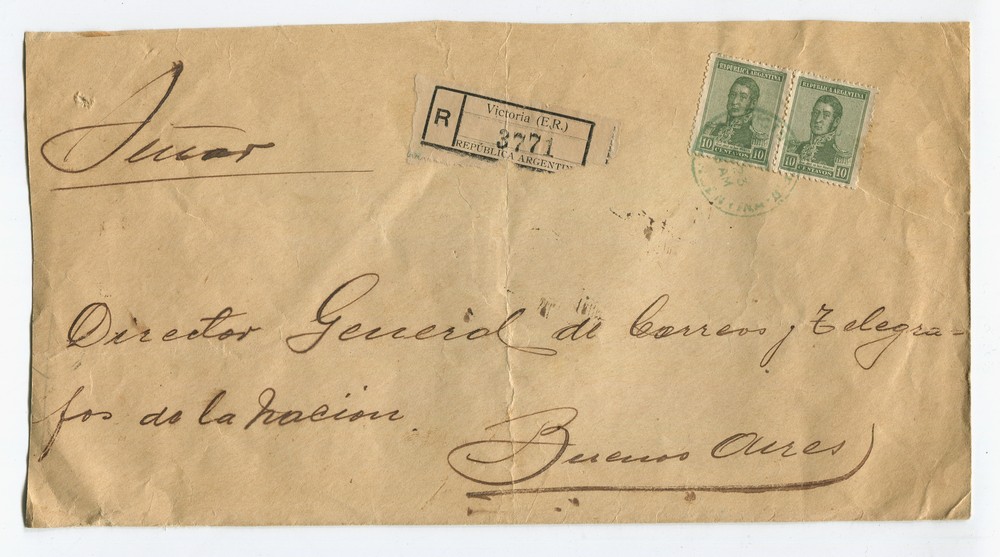 Señor
R
Victoria (E.R.)
3771
REPÚBLICA ARGENTIN
REPÚBLICA ARGENTINA
10 CENTAVOS 10
REPÚBLICA ARGENTINA
10 CENTAVOS 10
AM
Director General de Correos y Telegra-
fos de la Nacion
Buenos Aires